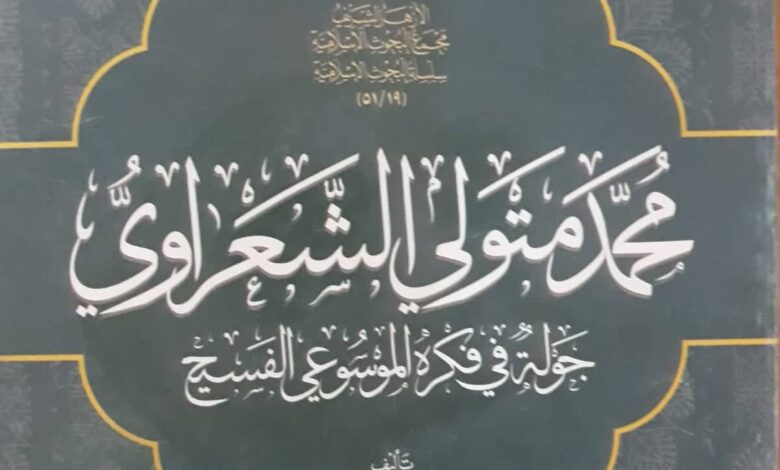 الأزهر الشريف
مجمع البحوث الإسلامية
سلسلة البحوث الإسلامية
(٥١/١٩)
محمَّد متَولي الشَّعَراويُّ
جَولةٌ في فكره الموسُوعي الفَسيح
تأليف